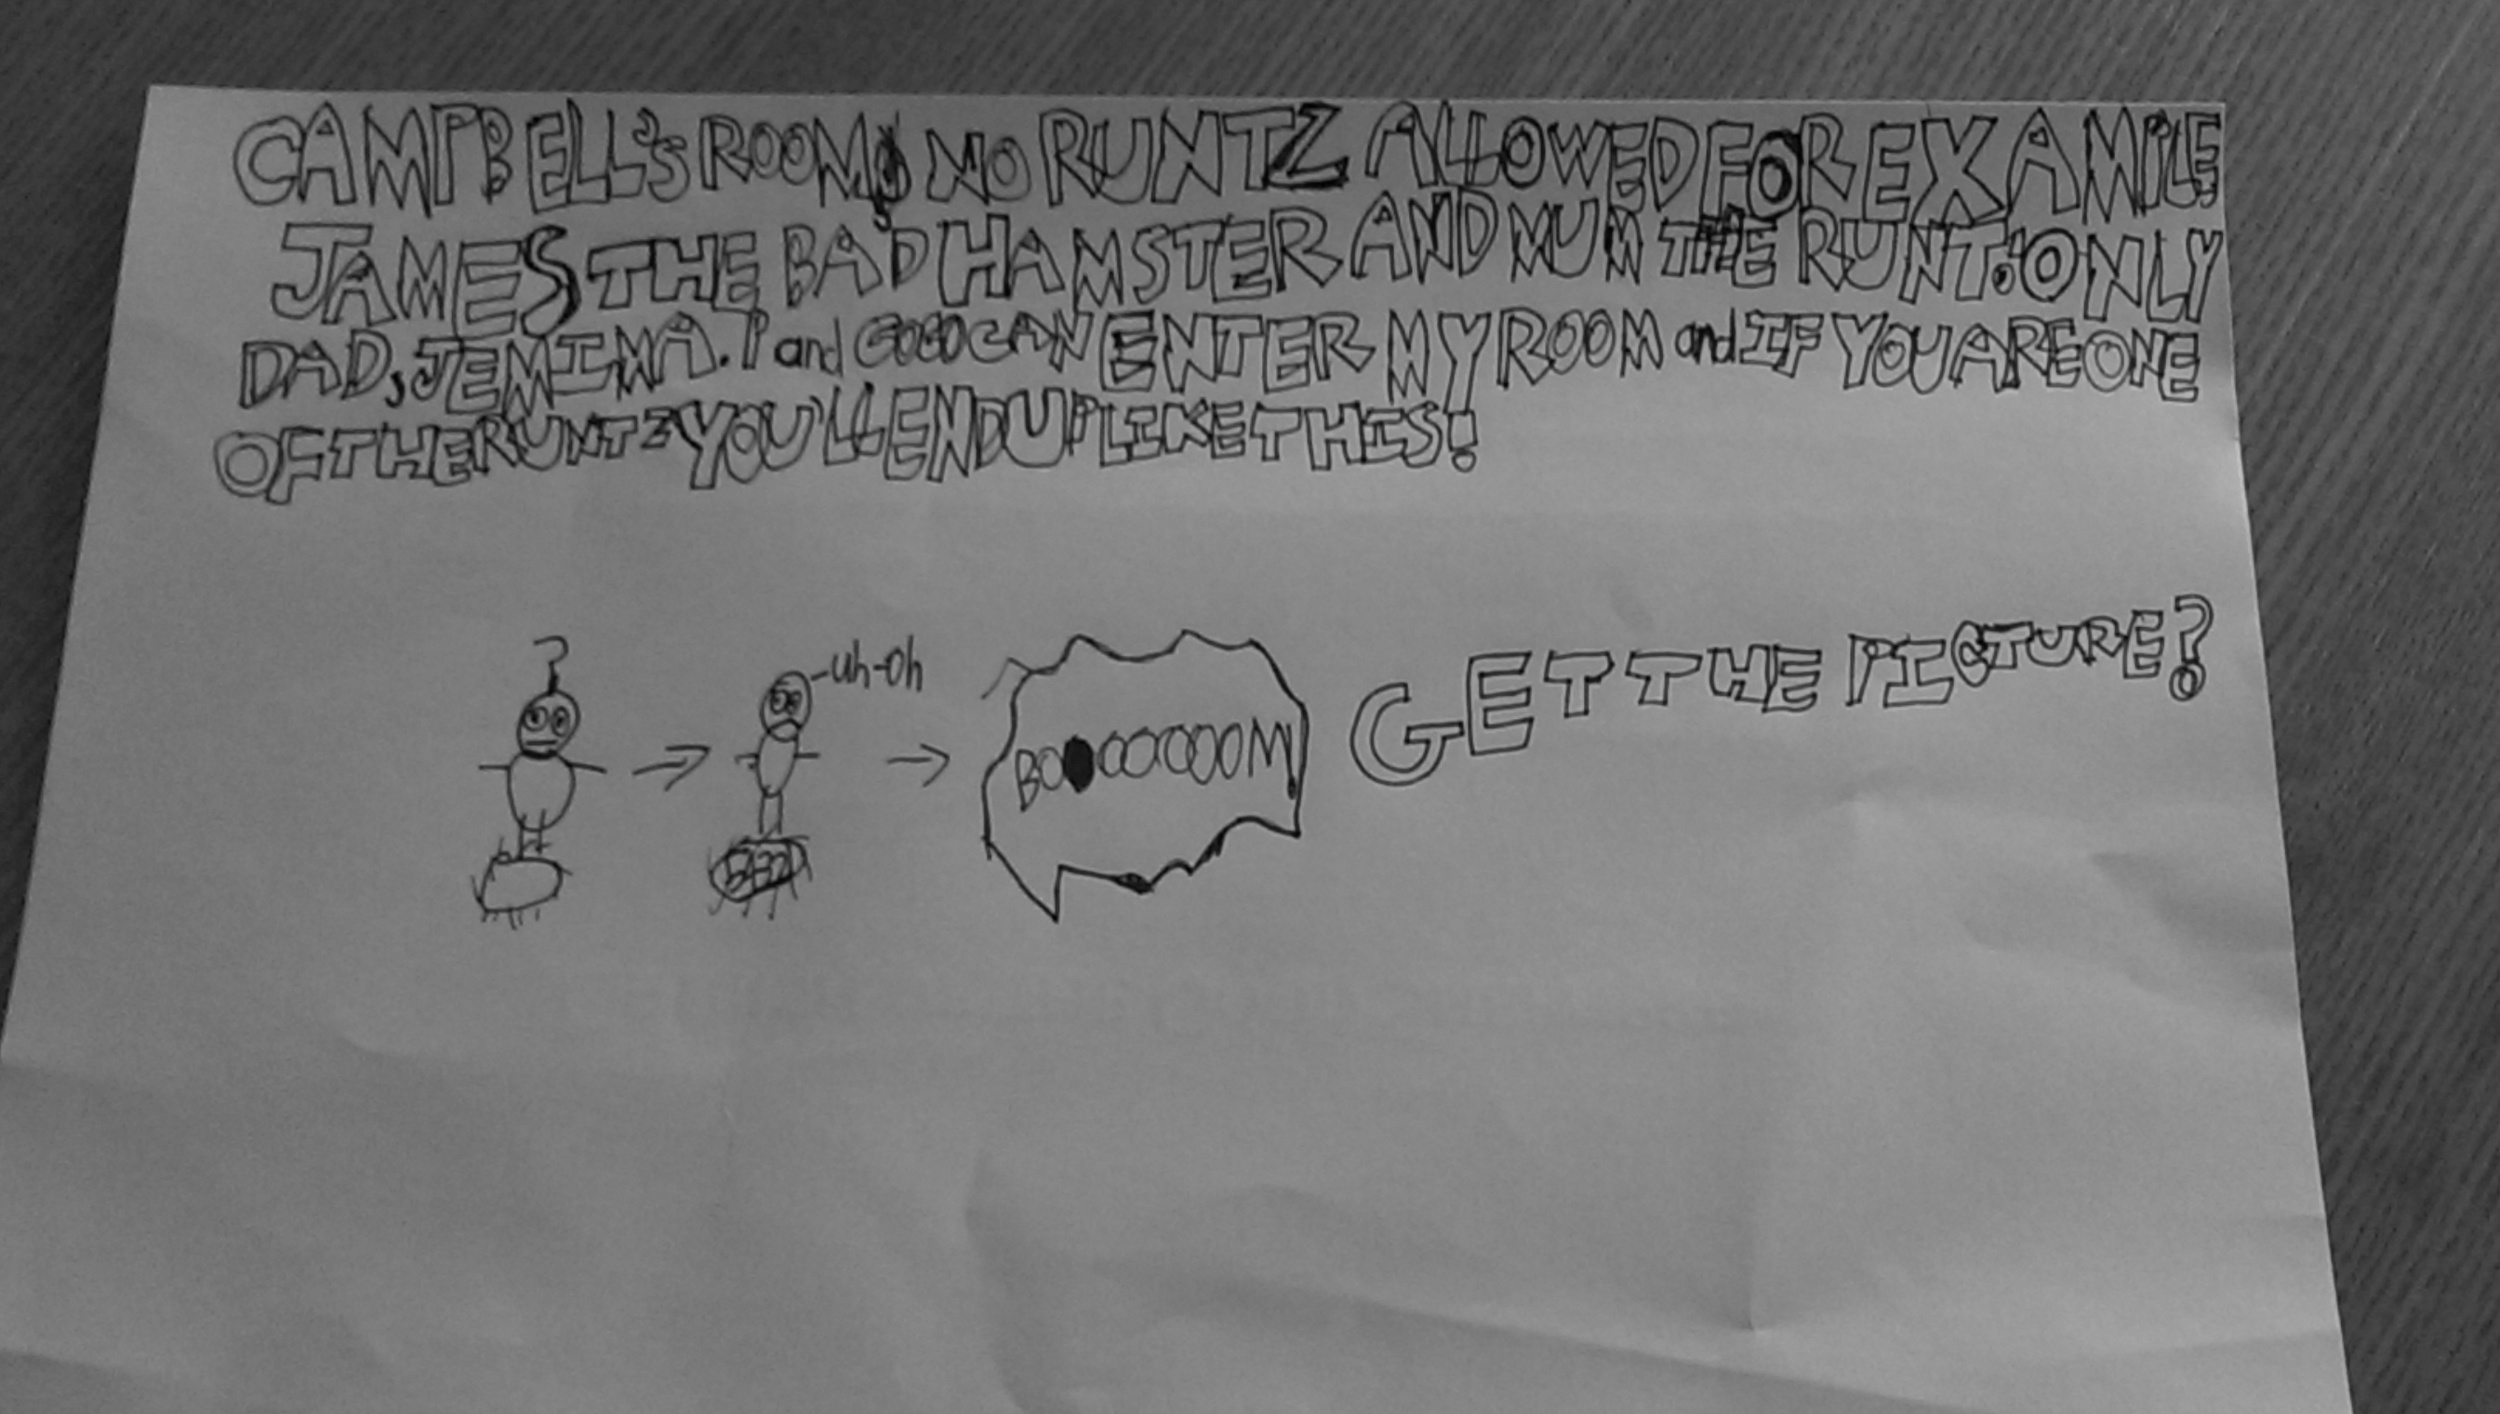 CAMPBELL'S ROOM, NO RUNTZ ALLOWED FOR EXAMPLE
JAMES THE BAD HAMSTER AND MUM THE RUNT. ONLY
DAD, JEMIMA.P and COCO CAN ENTER MY ROOM and IF YOU ARE ONE
OF THE RUNTZ YOU'LL END UP LIKE THIS!
?
-uh-oh
BOOOOOOOOM
GET THE PICTURE?